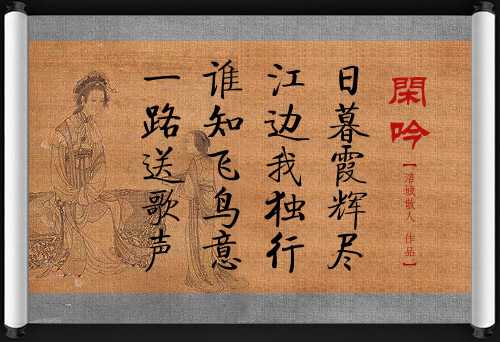 閑吟
作品
日暮霞辉尽
江边我独行
谁知飞鸟意
一路送歌声